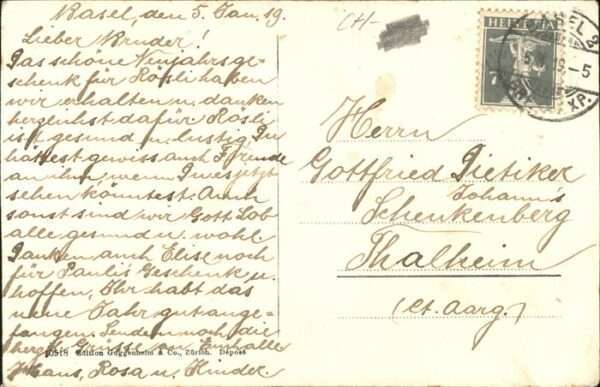 Basel, den 5. Jan. 19.
Lieber Bruder!
Das schöne Neujahrsge-
schenk für Rösli haben
wir erhalten u. danken
herzlichst dafür. Rösli
ist gesund u. lustig, Du
hättest gewiss auch Freude
an ihm, wenn Du es jetzt
sehen könntest. Auch
sonst sind wir Gott Lob
alle gesund u. wohl.
Danken auch Elise noch
für Paulis Geschenk u.
hoffen, Ihr habt das
neue Jahr gut ange-
fangen. Senden noch die
herzl. Grüsse an Euch alle
Hans, Rosa u. Kinder.
Edition Guggenheim & Co., Zürich. Déposé
CH-
HELVETIA
BASEL 2
XP.
Herrn
Gottfried Dietiker
Johann's
Schenkenberg
Thalheim
(Ct. Aarg.)